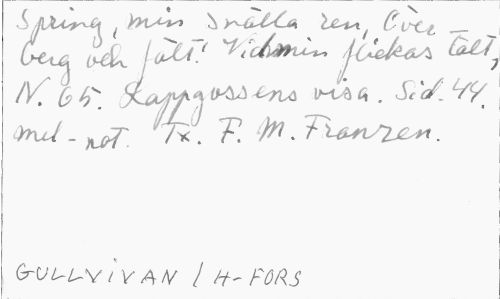 Spring, min snälla ren, Över
berg och fält! Vid min flickas tält,
N. 65. Lappgossens visa. Sid. 44.
mel-not. Tx. F. M. Franzen.
GULLVIVAN / H-FORS